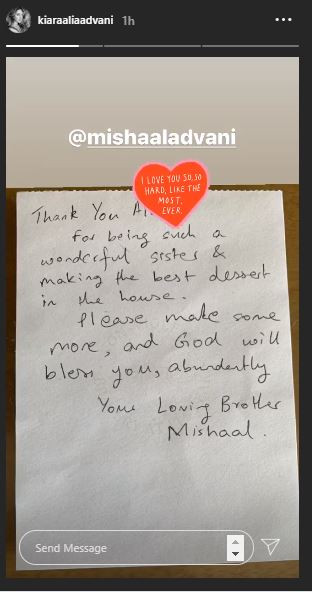 kiaraaliaadvani 1h
@mishaaladvani
I LOVE YOU SO, SO
HARD, LIKE THE
MOST.
EVER.
Thank You
For being such a
wonderful sister &
making the best dessert
in the house.
Please make some
more, and God will
bless you, abundantly
Your Loving Brother
Mishaal.
Send Message